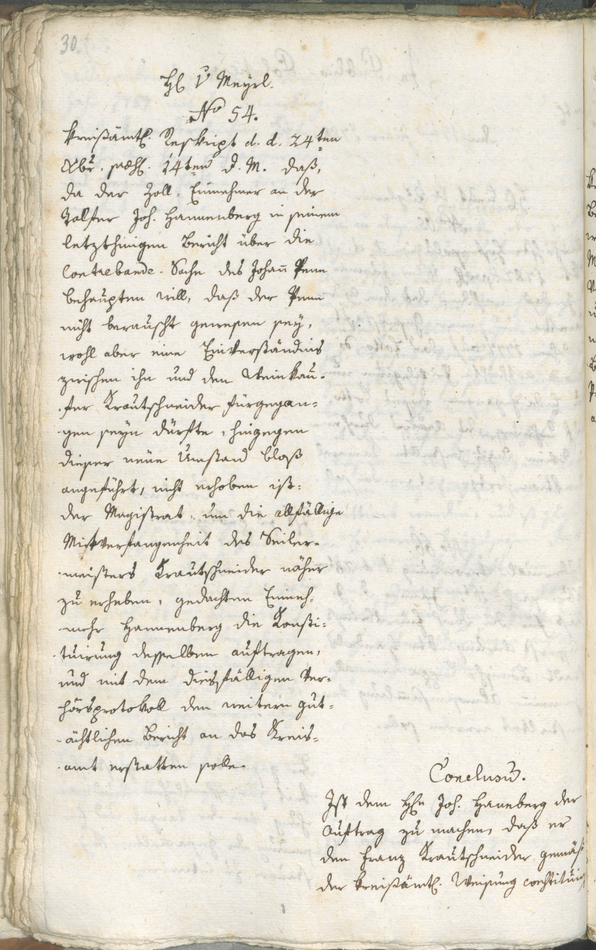 30.
H. v Mayrl.
No 54.
Kreißämtl. Reskript d. d. 24ten
Xbr. præs. 14ten d. M. daß,
da der Zoll-Einnehmer an der
Talfer Joh. Hannenberg in seinem
letzthinigen Bericht über die
Contrebande-Sache des Johan Penn
behaupten will, daß der Penn
nicht berauscht gewesen sey,
wohl aber eine Einverständnis
zwischen ihn und den Weinkäu-
fer Krautschneider fürgegan-
gen seyn dürfte, hingegen
dieser neue Umstand bloß
angeführt, nicht erhoben ist:
der Magistrat, um die allfällige
Mitverfangenheit des Seiler-
meisters Krautschneider näher
zu erheben, gedachten Einneh-
mer Hannenberg die Konsti-
tuirung desselben auftragen,
und mit dem diesfälligen Ver-
hörsprotokoll den weitern gut-
ächtlichen Bericht an das Kreis-
amt erstatten solle.
Conclusum.
Ist dem H. Joh. Haneberg der
Auftrag zu machen, daß er
den Franz Krautschneider gemäß
der kreißämtl. Weisung constituire